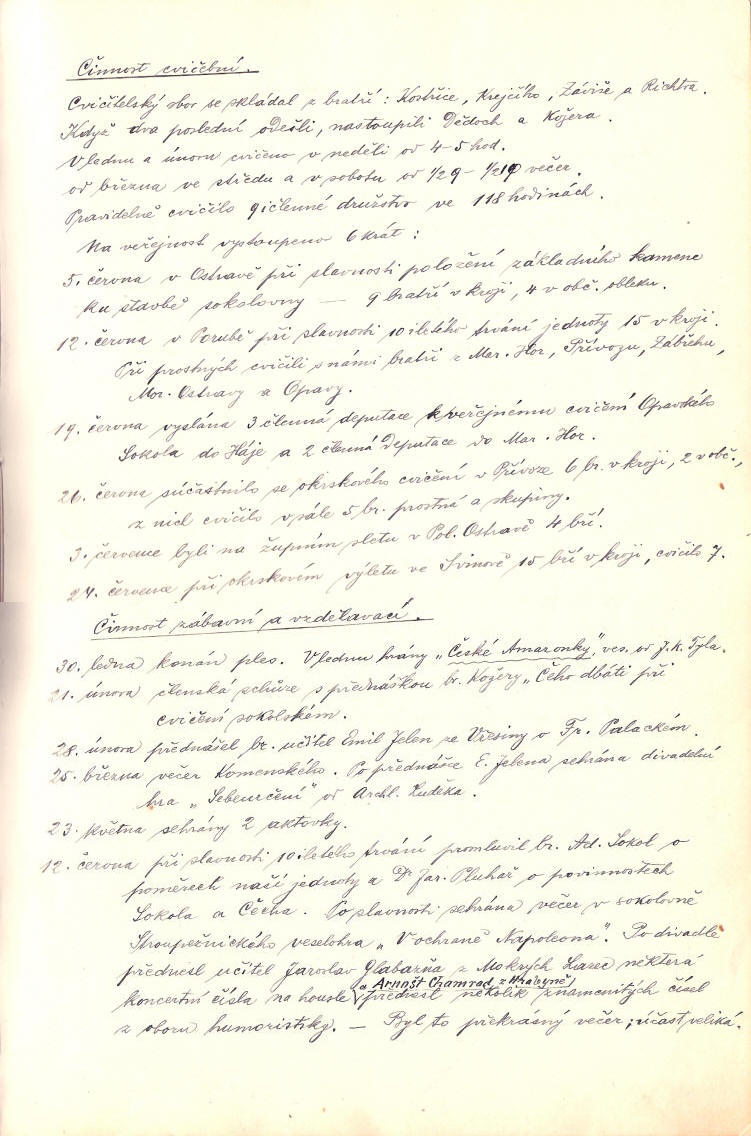 Činnost cvičební.
Cvičitelský sbor se skládal z bratří: Kostřice, Krejčího, Záviše a Richtra.
Když dva poslední odešli, nastoupili Dědoch a Kožera.
V lednu a únoru cvičeno v neděli od 4-5 hod.
od března ve středu a v sobotu od 1/2 9 - 1/2 10 večer.
Pravidelně cvičilo 9ičlenné družstvo ve 118 hodinách.
Na veřejnost vystoupeno 6 krát:
5. června v Ostravě při slavnosti položení základního kamene
ku stavbě sokolovny — 9 bratří v kroji, 4 v obč. obleku.
12. června v Porubě při slavnosti 10 iletého trvání jednoty 15 v kroji.
Při prostných cvičili s námi bratři z Mar. Hor, Přívozu, Zábřehu,
Mor. Ostravy a Opavy.
19. června vyslána 3 členná deputace k veřejnému cvičení Opavského
Sokola do Háje a 2 členná deputace do Mar. Hor.
26. června súčastnilo se okrskového cvičení v Přívoze 6 br. v kroji, 2 v obč.,
z nich cvičilo v sále 5 br. prostná a skupiny.
3. července byli na župním sletu v Pol. Ostravě 4 bří.
24. července při okrskovém výletu ve Svinově 15 bří v kroji, cvičilo 7.
Činnost zábavní a vzdělavací.
30. ledna konán ples. V lednu hrány „České Amazonky", ves. od J. K. Tyla.
21. února členská schůze s přednáškou br. Kožery „Čeho dbáti při
cvičení sokolském.
28. února přednášel br. učitel Emil Jelen ze Vřesiny o Fr. Palackém.
25. března večer Komenského. Po přednášce E. Jelena sehrána divadelní
hra „Sebeurčení" od Archl. Luděka.
23. května sehrány 2 aktovky.
12. června při slavnosti 10 iletého trvání promluvil br. Ad. Sokol o
poměrech naší jednoty a Dr Jar. Pluhař o povinnostech
Sokola a Čecha. Po slavnosti sehrána večer v sokolovně
Stroupežnického veselohra „V ochraně Napoleona". Po divadle
přednesl učitel Jaroslav Glabazňa z Mokrých Lazec některá
a Arnošt Chamrad z Hrabyně
koncertní čísla na housle přednesl několik znamenitých čísel
z oboru humoristiky. — Byl to překrásný večer; účast veliká.